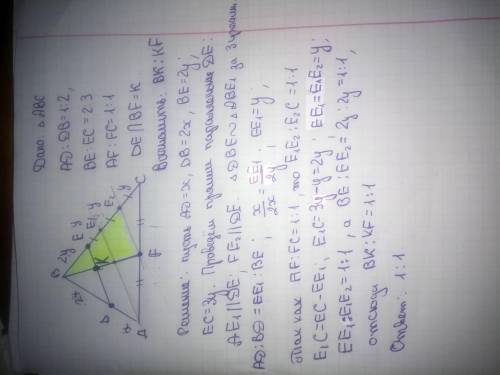 Дано: △ABC
AD:DB=1:2,
BE:EC=2:3
AF:FC=1:1
DE∩BF=K
Вычислить: BK:KF
Решение: пусть AD=x, DB=2x, BE=2y;
EC=3y. Проведем прямые параллельные DE:
AE₁||DE; FE₂||DE. △DBE∾△ABE₁ за 3 углами
AD:BD=EE₁:BE; x/2x=EE₁/2y; EE₁=y;
Так как AF:FC=1:1 то E₁E₂:E₂C=1:1
E₁C=EC-EE₁; E₁C=3y-y=2y; EE₁=E₁E₂=y;
EE₁:E₁E₂=1:1, а BE:EE₂=2y:2y=1:1,
отсюда BK:KF=1:1
Ответ: 1:1
B
2y
E
y
E₁
y
E₂
y
C
2x
K
D
x
A
F